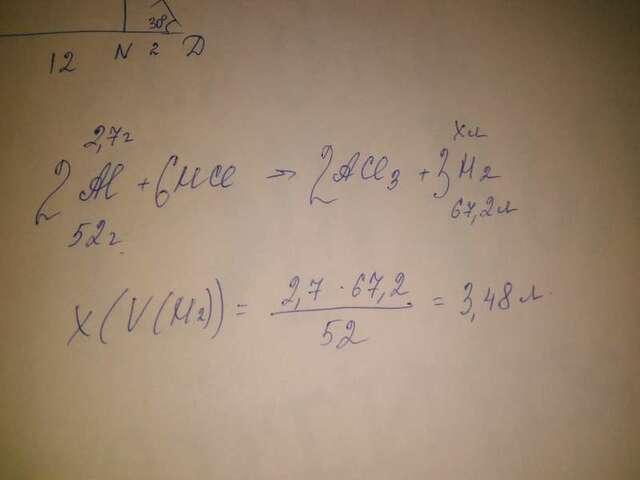 30°
12 N 2 D
2,7г хл
2Al + 6HCl → 2AlCl3 + 3H2
52г 67,2л
X(V(H2)) = 2,7 · 67,2 / 52 = 3,48л